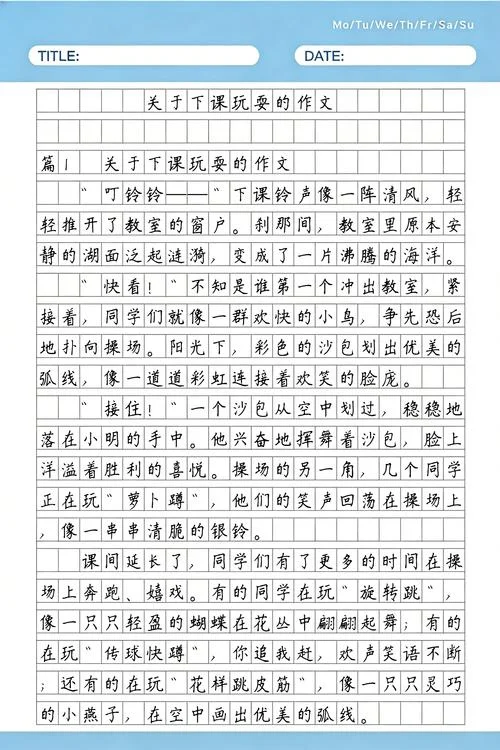 Mo/Tu/We/Th/Fr/Sa/Su
TITLE: DATE:
关于下课玩耍的作文
篇1 关于下课玩耍的作文
"叮铃铃——"下课铃声像一阵清风，轻
轻推开了教室的窗户。刹那间，教室里原本安
静的湖面泛起涟漪，变成了一片沸腾的海洋。
"快看！"不知是谁第一个冲出教室，紧
接着，同学们就像一群欢快的小鸟，争先恐后
地扑向操场。阳光下，彩色的沙包划出优美的
弧线，像一道道彩虹连接着欢笑的脸庞。
"接住！"一个沙包从空中划过，稳稳地
落在小明的手中。他兴奋地挥舞着沙包，脸上
洋溢着胜利的喜悦。操场的另一角，几个同学
正在玩"萝卜蹲"，他们的笑声回荡在操场上
，像一串串清脆的银铃。
课间延长了，同学们有了更多的时间在操
场上奔跑、嬉戏。有的同学在玩"旋转跳"，
像一只只轻盈的蝴蝶在花丛中翩翩起舞；有的
在玩"传球快蹲"，你追我赶，欢声笑语不断
；还有的在玩"花样跳皮筋"，像一只只灵巧
的小燕子，在空中画出优美的弧线。